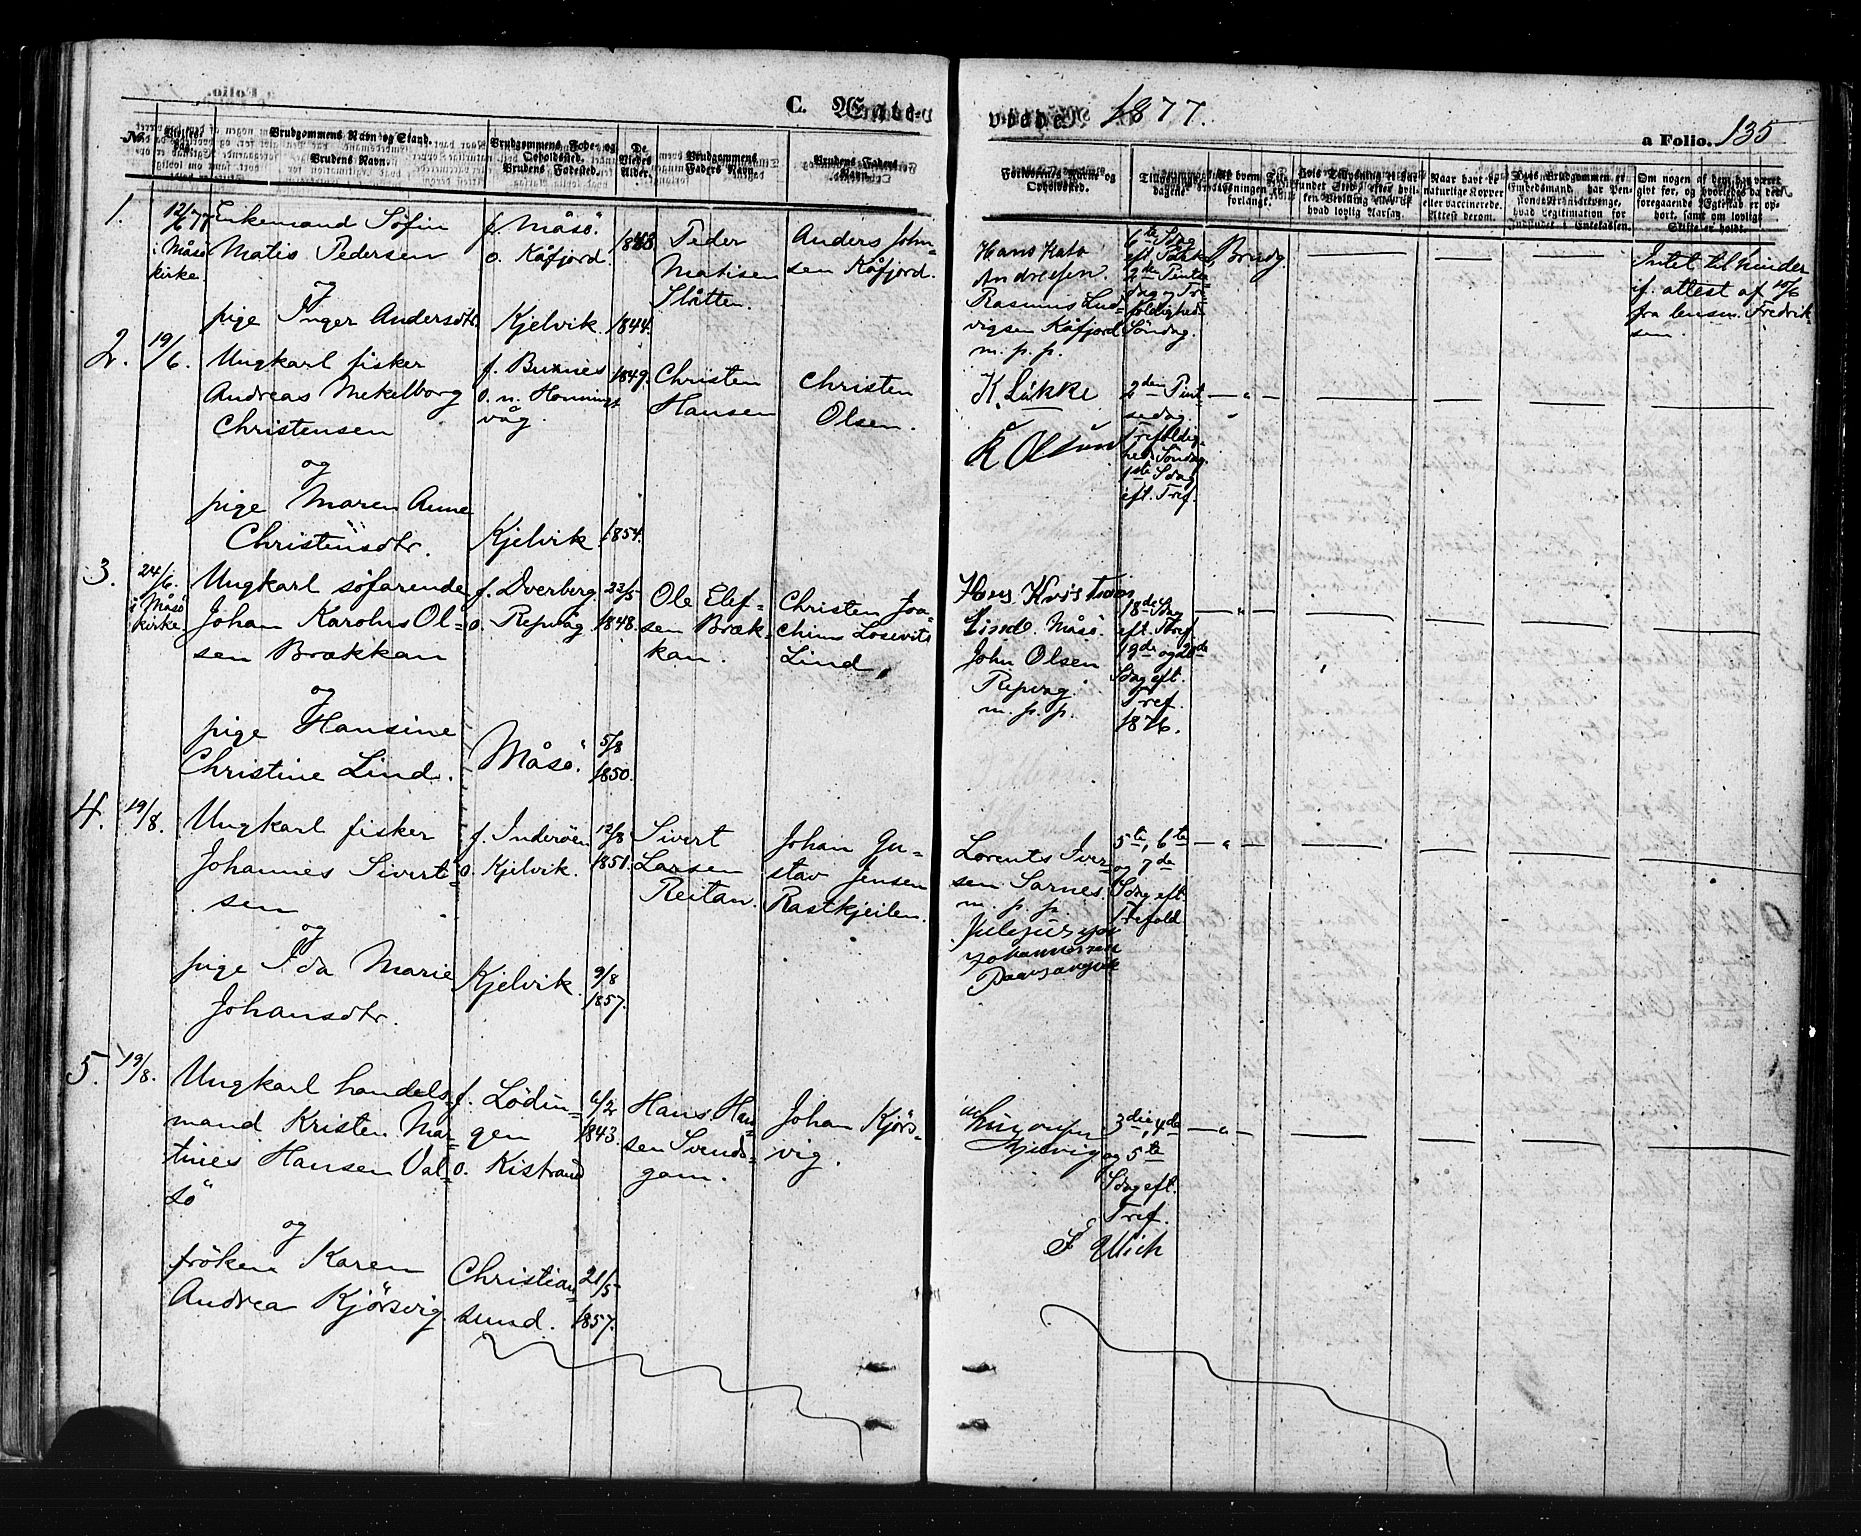 C. Egte-
viede 1877.
a Folio. 135
No.
Brudgommens Navn og Stand.
Brudens Navn.
Brudgommens Føde- og
Opholdssted.
Brudens Fødested.
De
Viedes
Alder.
Brudgommens
Faders Navn.
Brudens Faders
Navn.
Forlovernes Navne og
Opholdssted.
1.
12/6 77
i Måsö
kirke
Enkemand Søfin
Matis Pedersen
og
pige Inger Andersdtr.
f. Måsö.
o. Kåfjord.
Kjelvik.
1844.
Peder
Matisen
Slåtten.
Anders John-
sen Kåfjord.
Hans Kata
Andresen.
Rasmus Lud-
vigsen Kåfjord
m. p. p.
6te Sdag
eft. Påske
2den Pintse
dag og Tre-
foldigheds
Søndag.
Brudg.
Intet til hinder
if. attest af 10/6
fra lensm. Fredrik-
sen
2.
19/6.
Ungkarl fisker
Andreas Mekelborg
Christensen
og
pige Maren Anne
Christensdtr.
f. Buxnes
o. n. Honnings
våg.
Kjelvik
1849.
1854.
Christen
Hansen
Christen
Olsen.
K. Lükke
K Olsen
2den Pint-
sedag
Trefoldig-
heds Søndag
1ste Sdag
eft. Tref.
3.
24/6.
i Måsö
kirke
Ungkarl søfarende
Johan Karolius Ol-
sen Brækkan
og
pige Hansine
Christine Lind.
f. Dverberg
o. Repvåg
Måsö.
23/5
1848.
5/8
1850.
Ole Elef-
sen Bræk-
kan.
Christen Joa-
chim Losevits
Lind.
Hans Kristian
Lind. Måsö.
John Olsen
Repvåg
m. p. p.
18de Sdag
eft. Tref.
19de og 20de
Sdag eft.
Tref.
1876.
4.
19/8.
Ungkarl fisker
Johannes Sivert-
sen
og
pige Ida Marie
Johansdtr.
f. Inderöen
o. Kjelvik.
Kjelvik.
12/8
1851.
9/8
1857.
Sivert
Larsen
Reitan.
Johan Gu-
stav Jensen
Rastkjeilen.
Lorents Iver-
sen Sarnes.
m. p. p.
Johannesen
5te, 6te
og 7de
Sdag eft.
Trefold
5.
19/8.
Ungkarl handels-
mand Kristen Mar-
tines Hansen Val-
sö
og
fröken Karen
Andrea Kjörsvig.
f. Lödin-
gen
o. Kistrand
Christian-
sund.
6/2
1843.
21/5
1857.
Hans Han-
sen Svends-
gam.
Johan Kjörs-
vig.
3die, 4de
og 5te
Sdag eft.
Tref.
F Ulich